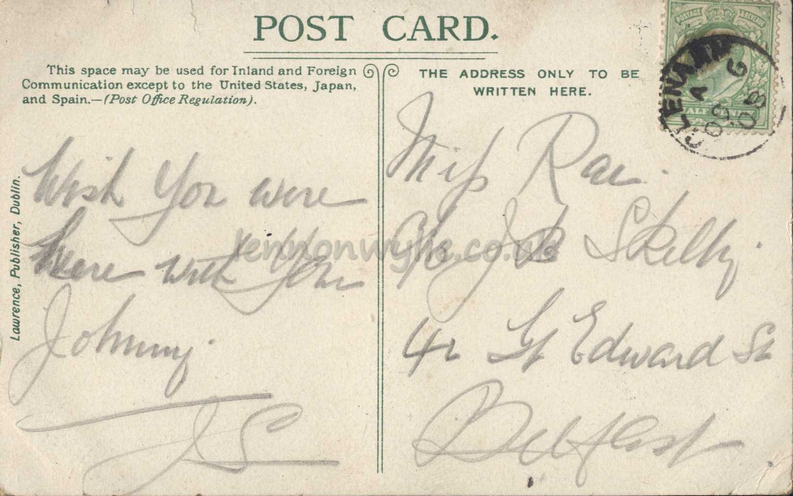 POST CARD.
This space may be used for Inland and Foreign
Communication except to the United States, Japan,
and Spain.—(Post Office Regulation).
THE ADDRESS ONLY TO BE
WRITTEN HERE.
Lawrence, Publisher, Dublin.
Wish You were
here with You
Johnny.
J S
Miss Rae.
J B Skelly.
42 Gt Edward St
Belfast
lennonwylie.co.uk
HALF
08